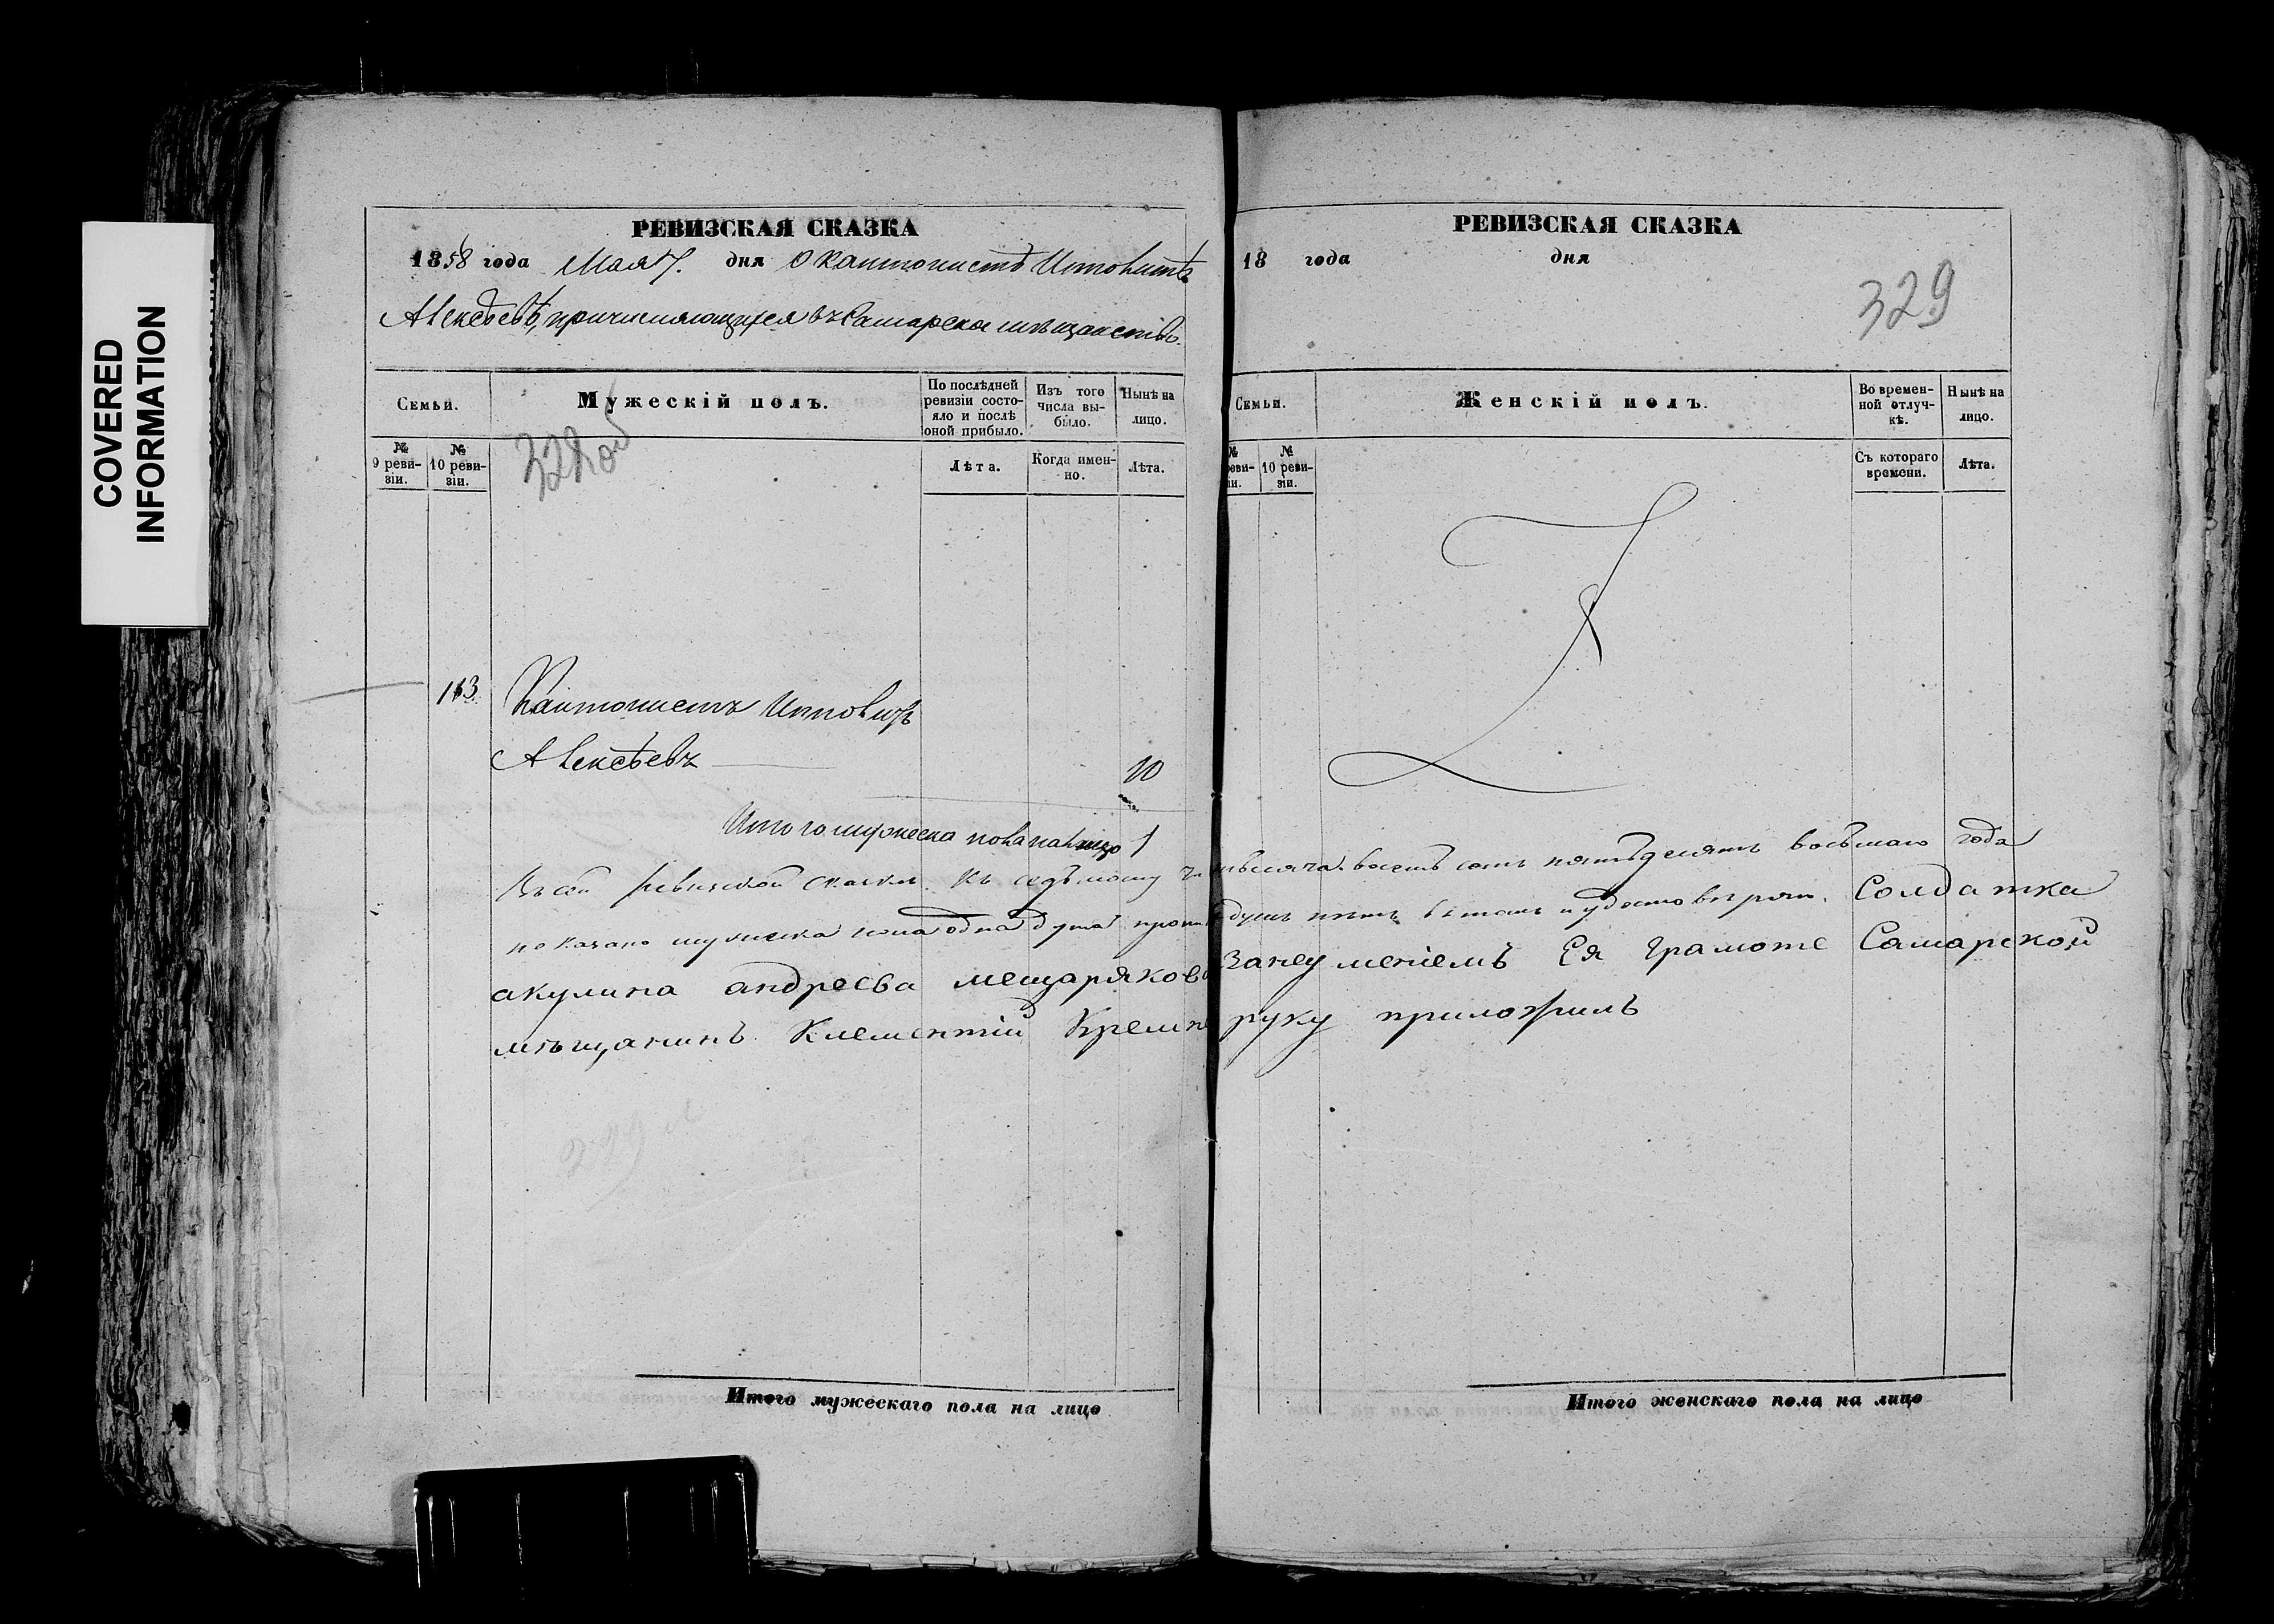 COVERED
INFORMATION
РЕВИЗСКАЯ СКАЗКА
1858 года Мая 7. дня О кантонистѣ Ипполитѣ
Алексѣевѣ, причисляющихся въ Самарское мѣщанство.
Семьи.
Мужескій полъ.
По послѣдней
ревизіи состо-
яло и послѣ
оной прибыло.
Изъ того
числа вы-
было.
Нынѣ на
лицо.
№
9 реви-
зіи.
№
10 реви-
зіи.
Лѣта.
Когда имен-
но.
Лѣта.
113 Кантонистъ Ипполитъ
Алексѣевъ 10
Итого мужеска пола на лицо 1
РЕВИЗСКАЯ СКАЗКА
18 года дня
329
Семьи.
Женскій полъ.
Во времен-
ной отлуч-
кѣ.
Нынѣ на
лицо.
№
реви-
зіи.
№
10 реви-
зіи.
Съ котораго
времени.
Лѣта.
Въ сей ревизской сказкѣ къ седьмому тысяча восемь сотъ пятьдесятъ восьмаго года
показано мужеска пола одна душа душъ нѣтъ въ томъ и удостовѣряю. Солдатка
акулина андреева мещарякова Занеуменіемъ Ея Грамоте Самарской
мѣщанинъ Клементій руку приложилъ
Итого мужескаго пола на лицо
Итого женскаго пола на лицо